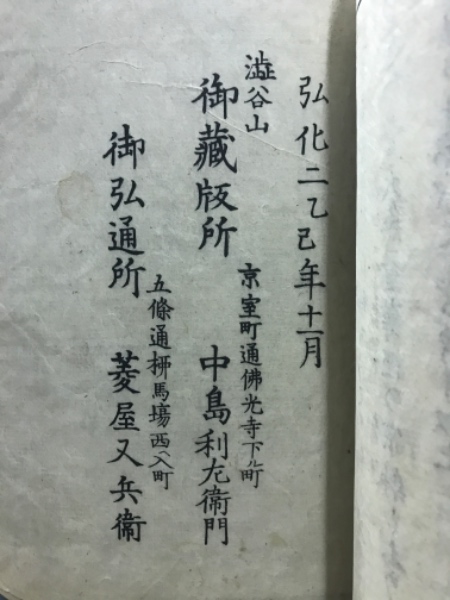 弘化二乙巳年十一月
澁谷山
御藏版所
京室町通佛光寺下ル町
中島利左衞門
御弘通所
五條通栁馬塲西ヘ入町
菱屋又兵衞